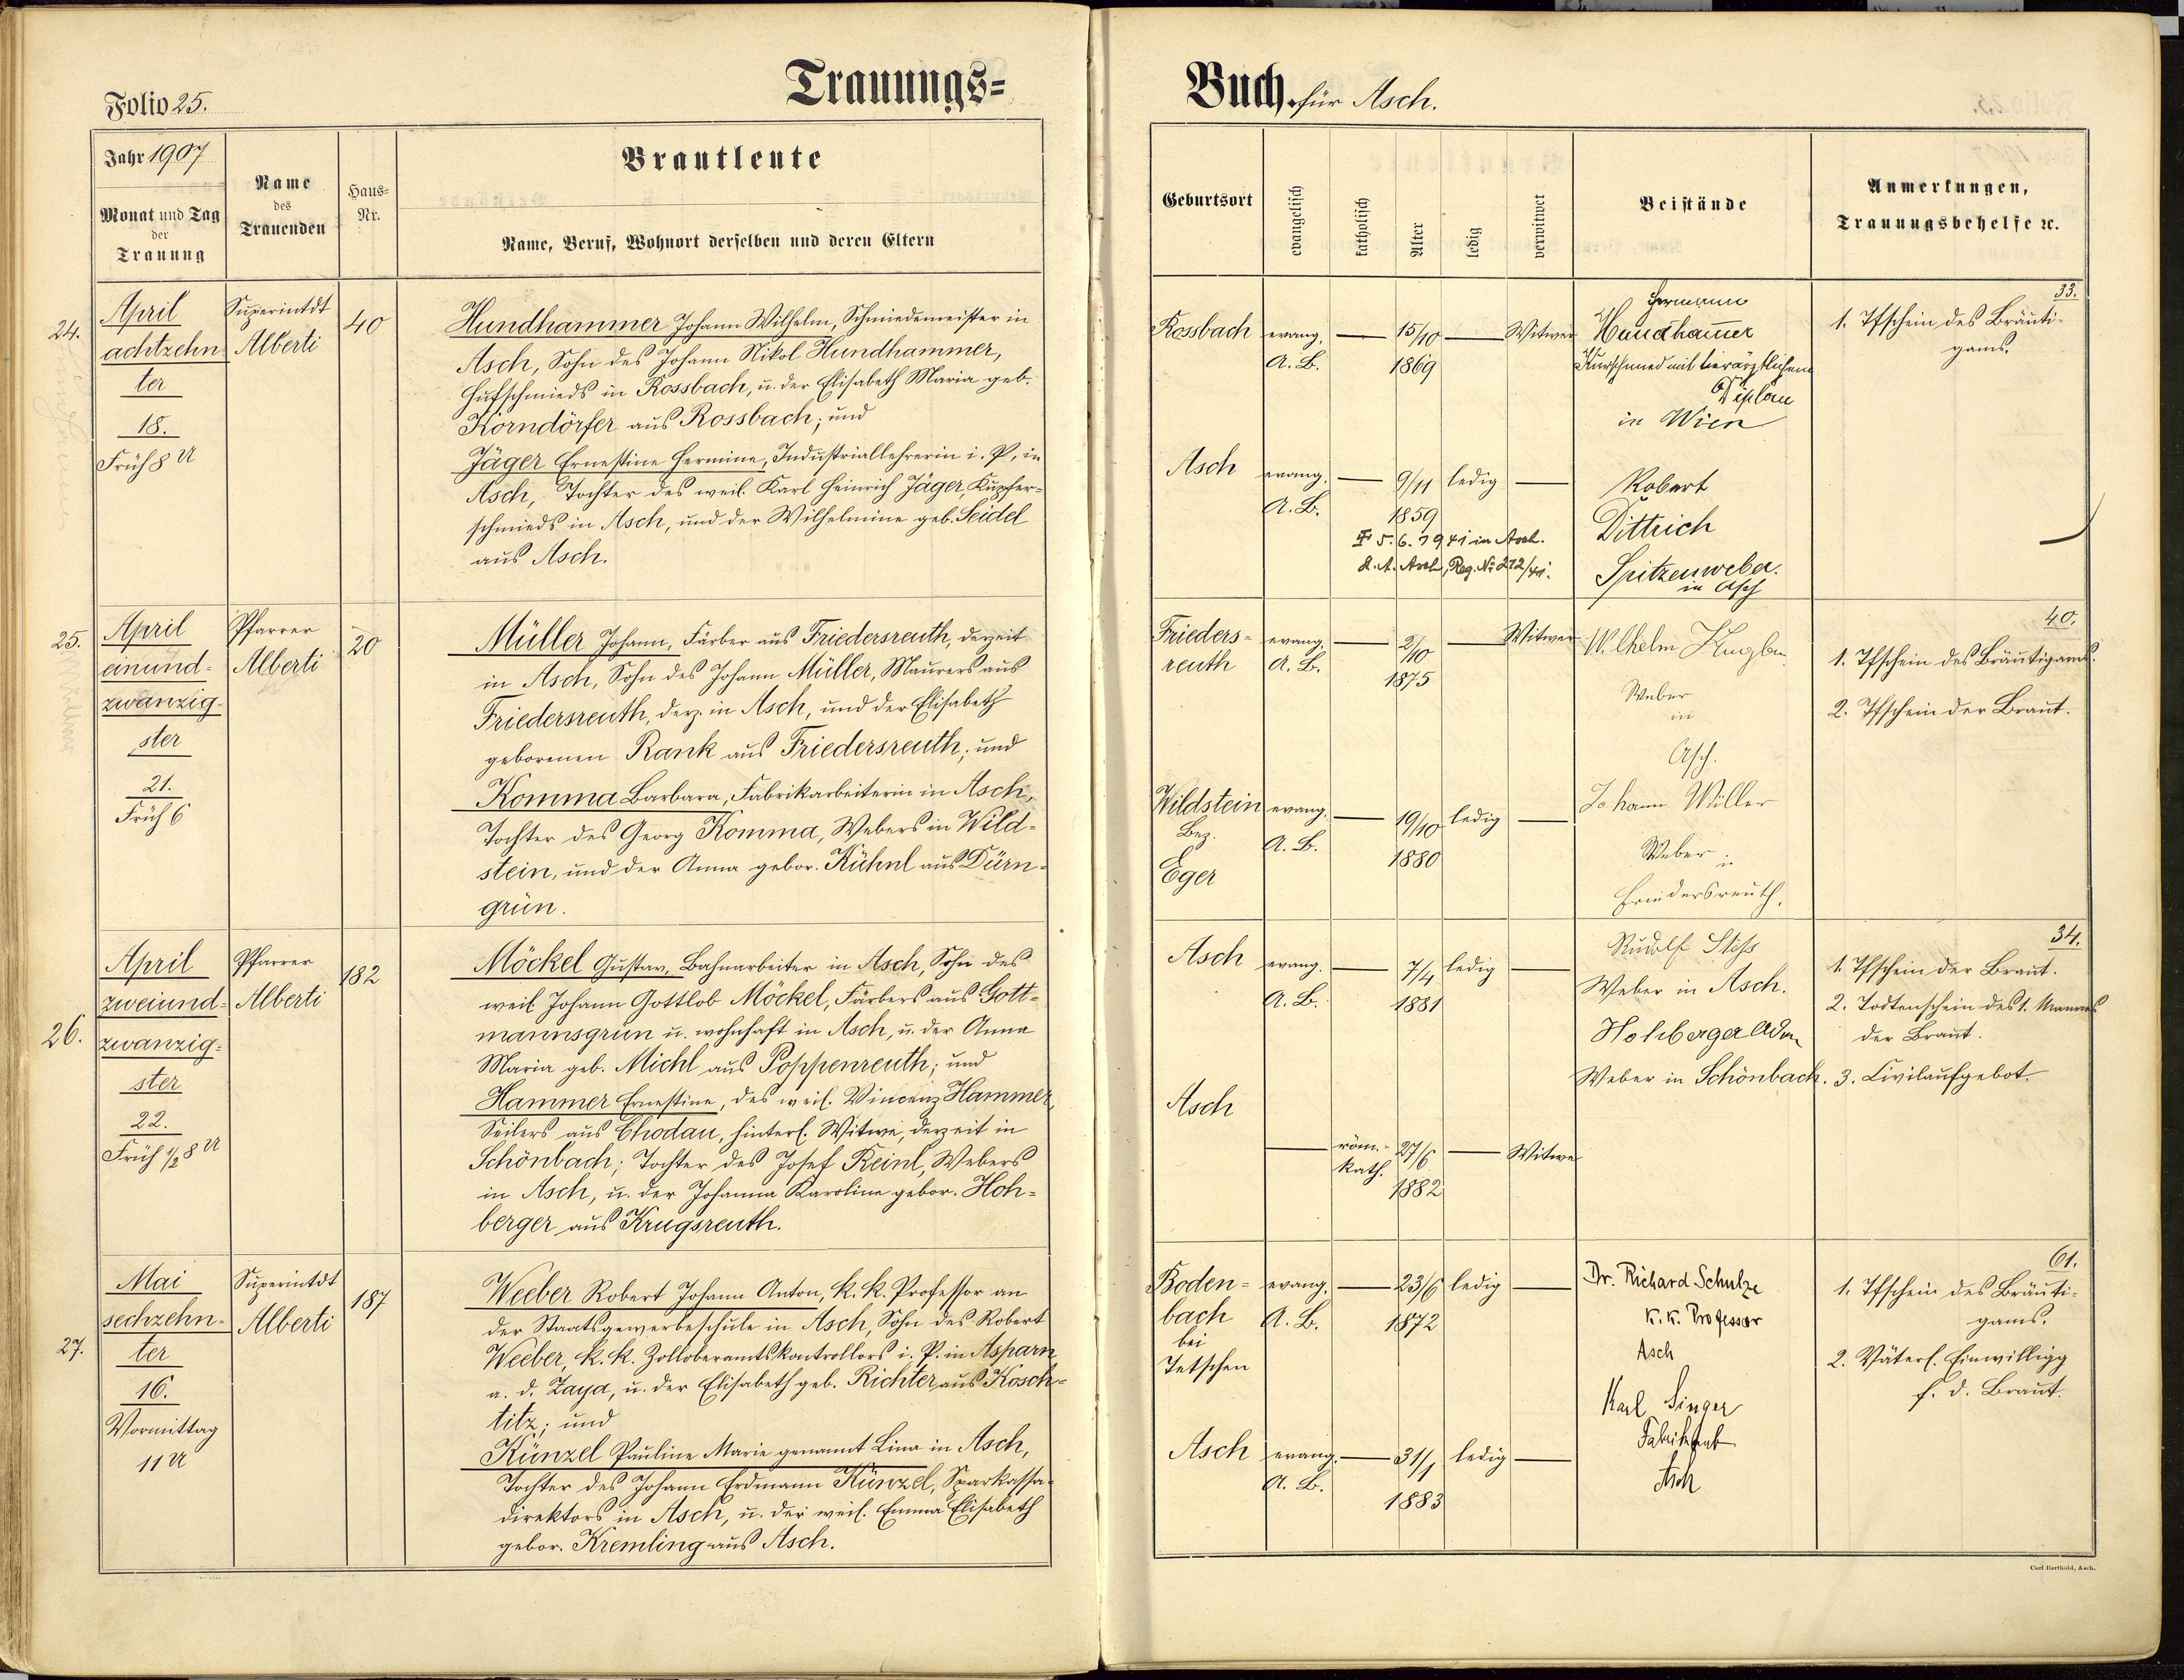 Folio 25.
Trauungs=
Jahr 1907
Monat und Tag
der
Trauung
Name
des
Trauenden
Haus=
Nr.
Brautleute
Name, Beruf, Wohnort derselben und deren Eltern
24.
April
achtzehn
ter
18.
Früh 8 U
Superintdt
Alberti
40
Hundhammer Johann Wilhelm, Schmiedemeister in
Asch, Sohn des Johann Nikol Hundhammer,
Hufschmieds in Rossbach, u. der Elisabeth Maria geb.
Korndörfer aus Rossbach; und
Jäger Ernestine Hermine, Industriallehrerin i. P. in
Asch, Tochter des weil. Karl Heinrich Jäger, Kupfer=
schmieds in Asch, und der Wilhelmine geb. Seidel
aus Asch.
25.
April
einund=
zwanzig=
ster
21.
Früh 6
Pfarrer
Alberti
20
Müller Johann, Färber aus Friedersreuth, derzeit
in Asch, Sohn des Johann Müller, Maurers aus
Friedersreuth, derz. in Asch, und der Elisabeth
geborenen Rank aus Friedersreuth; und
Komma Barbara, Fabrikarbeiterin in Asch,
Tochter des Georg Komma, Webers in Wild=
stein, und der Anna gebor. Kühnl aus Dürn=
grün.
26.
April
zweiund=
zwanzig=
ster
22.
Früh 1/2 8 U
Pfarrer
Alberti
182
Möckel Gustav, Bahnarbeiter in Asch, Sohn des
weil. Johann Gottlob Möckel, Färbers aus Gott=
mannsgrün u. wohnhaft in Asch, u. der Anna
Maria geb. Michl aus Poppenreuth; und
Hammer Ernestine, des weil. Vincenz Hammer,
Seilers aus Chodau, hinterl. Witwe, derzeit in
Schönbach; Tochter des Josef Reinl, Webers
in Asch, u. der Johanna Karoline gebor. Hoh=
berger aus Krugsreuth.
27.
Mai
sechzehn=
ter
16.
Vormittag
11 U
Superintdt
Alberti
187
Weeber Robert Johann Anton, k. k. Professor an
der Staatsgewerbeschule in Asch, Sohn des Robert
Weeber, k. k. Zolloberamtskontrollors i. P. in Asparn
a. d. Zaya, u. der Elisabeth geb. Richter aus Kosch=
titz; und
Künzel Pauline Marie genannt Lina in Asch,
Tochter des Johann Erdmann Künzel, Sparkassa=
direktors in Asch, u. der weil. Emma Elisabeth
gebor. Kremling aus Asch.
Buch für Asch.
Geburtsort
evangelisch
katholisch
Alter
ledig
verwitwet
Beistände
Anmerkungen,
Trauungsbehelfe ꝛc.
Rossbach
evang.
A. B.
15/10
1869
Witwer
Hermann
Hundham̄er
Kurschmied mit tierärztlichem
Diplom
in Wien
33.
1. Tfschein des Bräuti=
gams.
Asch
evang.
A. B.
9/11
1859
ledig
Robert
Dittrich
Spitzenweber
in Asch
5. 6. 1941 in Asch.
Asch, Reg. № 212/41.
Frieders=
reuth
evang.
A. B.
2/10
1875
Witwer
Wilhelm
Weber
in
Asch.
40.
1. Tfschein des Bräutigams.
2. Tfschein der Braut.
Wildstein
Bez.
Eger
evang.
A. B.
19/10
1880
ledig
Johann Willer
Weber in
Friedersreuth.
Asch
evang.
A. B.
7/4
1881
ledig
Rudolf
Weber in Asch.
Hohberger
Weber in Schönbach.
34.
1. Tfschein der Braut.
2. Todtenschein des 1. Mannes
der Braut.
3. Civilaufgebot.
Asch
röm.-
kath.
27/6
1882
Witwe
Boden=
bach
bei
Tetschen
evang.
A. B.
23/6
1872
ledig
Dr. Richard Schulze
k. k. Professor
Asch
61.
1. Tfschein des Bräuti=
gams.
2. Väterl. Einwilligg
f. d. Braut.
Asch
evang.
A. B.
31/1
1883
ledig
Karl Singer
Fabrikant
Asch
Carl Berthold, Asch.